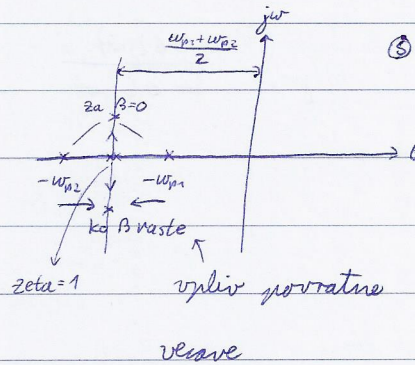 jw
(wp1 + wp2) / 2
Ⓢ
za β=0
-wp2
-wp1
ko β raste
zeta=1
vpliv povratne
vezave